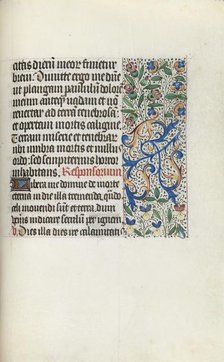 citatis dierū meor finietur
brevi. Dimitte ergo me dñe
ut plangam paululū dolorē
meum anteqꝫ vadam et nō
revertar ad terrā tenebrosā
et opertam mortis caligine
Terram miserie et tenebraꝫ
umbra mortis et nullus
ordo: sed sempiternus horror
inhabitans. Responsorium
Libera me domine de morte
eterna in die illa tremēda: quādo
celi movendi sunt et terra. Dum
veneris iudicare seculum per ignem
v̄ Dies illa dies ire calamitatis